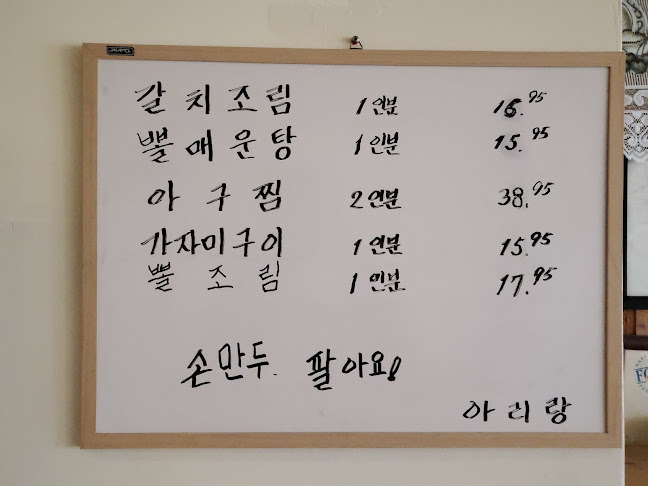 갈치조림 1인분 16.95
뽈매운탕 1인분 15.95
아구찜 2인분 38.95
가자미구이 1인분 15.95
뽈조림 1인분 17.95
손만두 팔아요!
아리랑